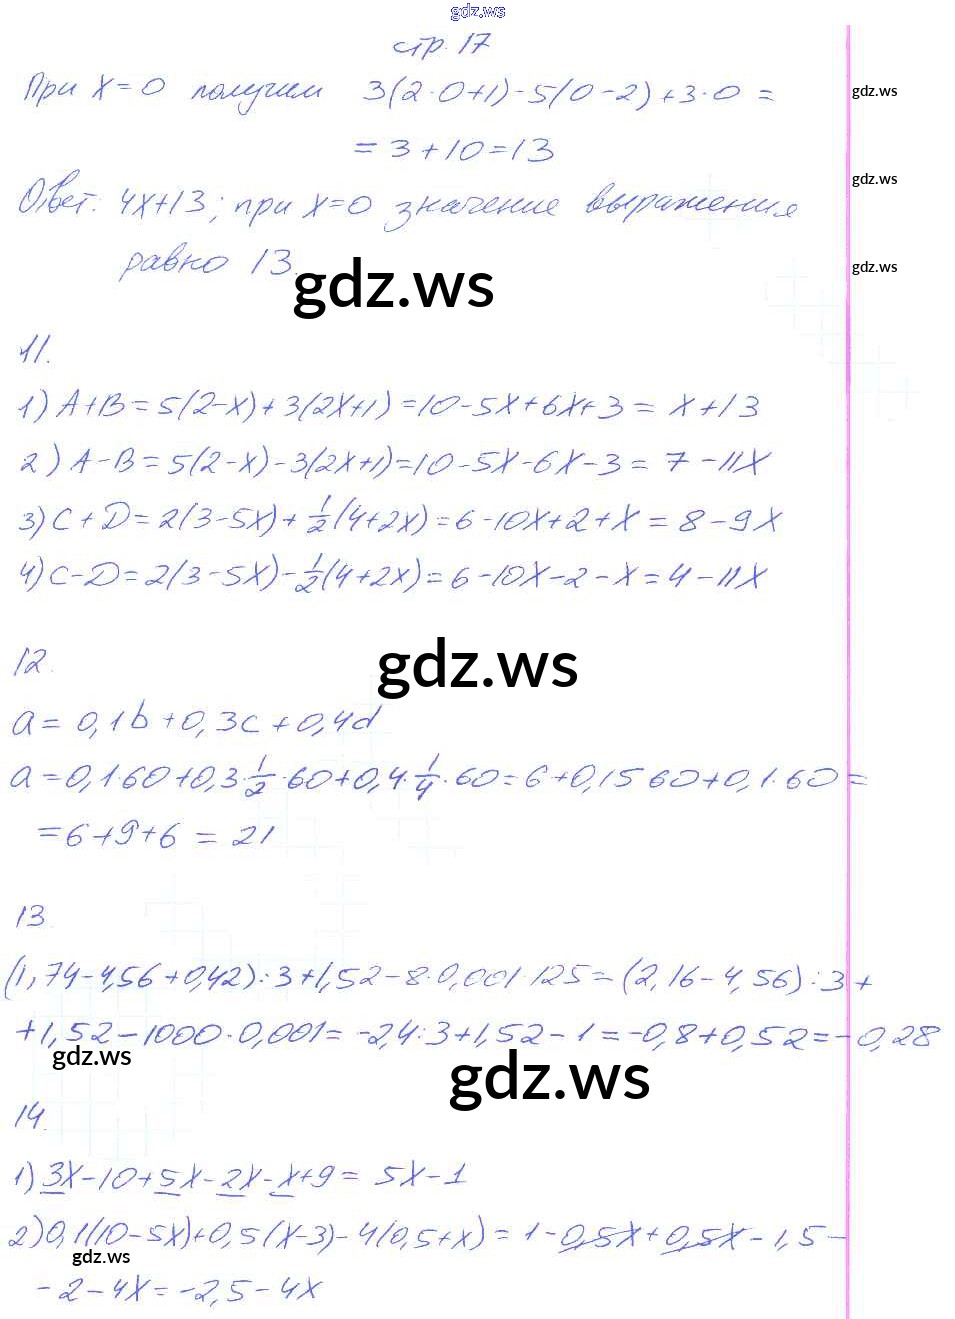 gdz.ws
стр. 17
При x=0 получим 3(2·0+1)-5(0-2)+3·0 =
gdz.ws
= 3+10=13
gdz.ws
Ответ: 4x+13; при x=0 значение выражения
равно 13.
gdz.ws
gdz.ws
11.
1) A+B=5(2-x)+3(2x+1)=10-5x+6x+3= x+13
2) A-B=5(2-x)-3(2x+1)=10-5x-6x-3= 7-11x
3) C+D=2(3-5x)+1/2(4+2x)=6-10x+2+x=8-9x
4) C-D=2(3-5x)-1/2(4+2x)=6-10x-2-x=4-11x
12.
gdz.ws
a= 0,1b+0,3c+0,4d
a=0,1·60+0,3·1/2·60+0,4·1/4·60=6+0,15 60+0,1·60=
=6+9+6 = 21
13.
(1,74-4,56+0,42):3+1,52-8·0,001·125=(2,16-4,56):3+
+1,52-1000·0,001=-2,4:3+1,52-1=-0,8+0,52=-0,28
gdz.ws
gdz.ws
14.
1) 3x-10+5x-2x-x+9= 5x-1
2) 0,1(10-5x)+0,5(x-3)-4(0,5+x)=1-0,5x+0,5x-1,5-
gdz.ws
-2-4x=-2,5-4x